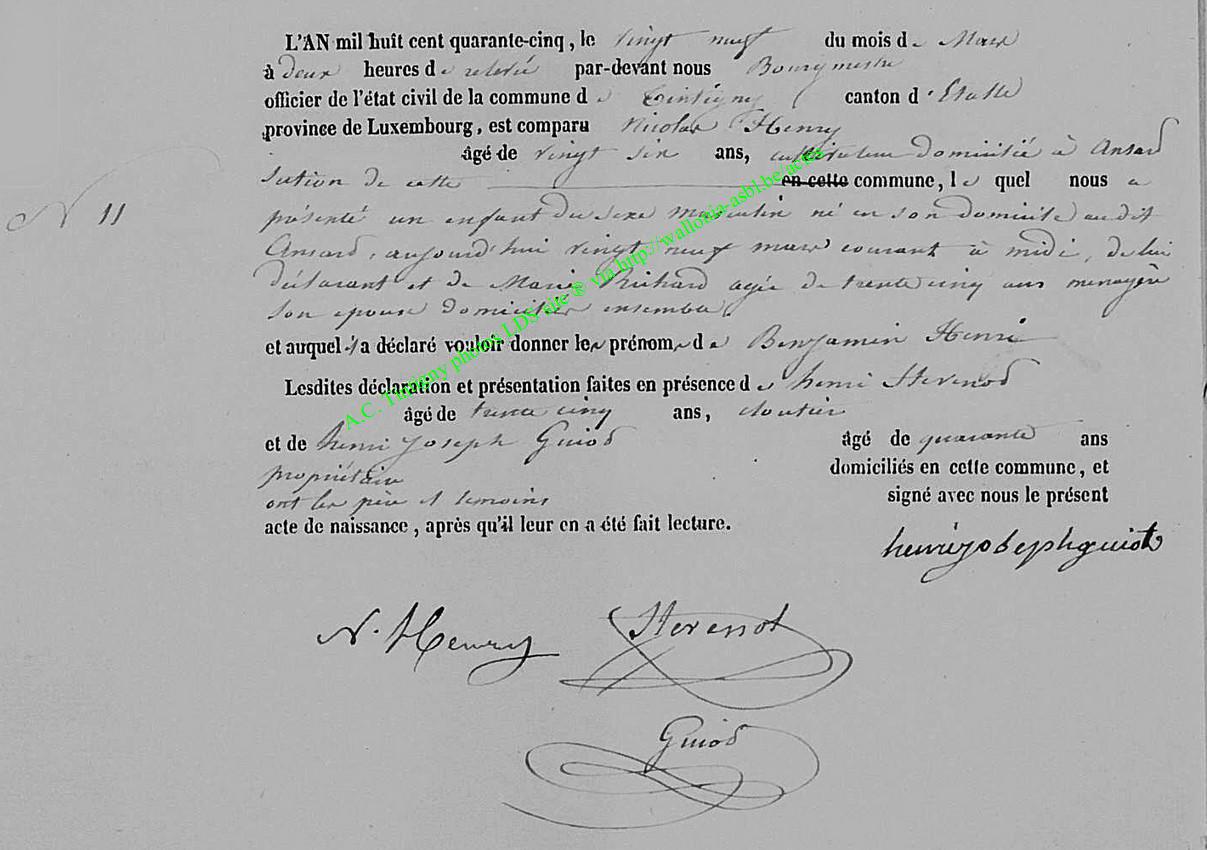 L'AN mil huit cent quarante-cinq, le vingt neuf du mois de Mars
à deux heures de relevée par-devant nous Bourgmestre
officier de l'état civil de la commune de Tintigny canton d'Etalle
province de Luxembourg, est comparu Nicolas Henry
âgé de vingt six ans, cultivateur domicilié à Ansart
section de cette en cette commune, lequel nous a
N 11
présenté un enfant du sexe masculin né en son domicile audit
Ansart, aujourd'hui vingt neuf mars courant à midi, de lui
déclarant et de Marie Richard agée de trente cinq ans menagère
son epouse domiciliés ensemble.
et auquel il a déclaré vouloir donner les prénoms de Benjamin Henri
Lesdites déclaration et présentation faites en présence de henri Stevenod
âgé de trente cinq ans, cloutier
et de henri joseph Guiod âgé de quarante ans
propriétaire domiciliés en cette commune, et
ont les père et temoins signé avec nous le présent
acte de naissance, après qu'il leur en a été fait lecture.
henri joseph guiot
N. Henry Stevenot
Guiod
A.C. Tintigny photos LDS site ® via http://wallonia-asbl.be/actes